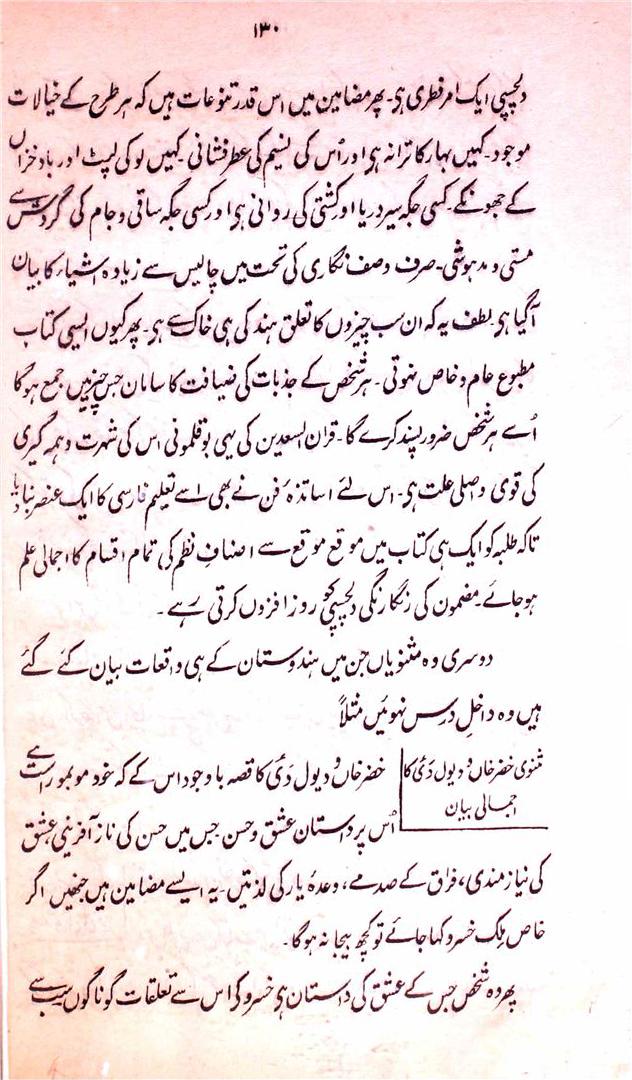 ۱۳۰
دلچسپی ایک امر فطری ہی۔ پھر مضامین میں اس قدر تنوعات ہیں کہ ہر طرح کے خیالات
موجود۔ کہیں بہار کا ترانہ ہی اور اُس کی نسیم کی عطر فشانی۔ کہیں لو کی لپٹ اور باد خزاں
کے جھونکے۔ کسی جگہ سیر دریا اور کشتی کی روانی ہی اور کسی جگہ ساقی و جام کی گردش سے
مستی و مدہوشی۔ صرف وصف نگاری کی تحت میں چالیس سے زیادہ اشیاء کا بیان
آگیا ہی۔ لطف یہ کہ ان سب چیزوں کا تعلق ہند کی ہی خاک سے ہی۔ پھر کیوں ایسی کتاب
مطبوع عام و خاص نہوتی۔ ہر شخص کے جذبات کی ضیافت کا سامان جس چیز میں جمع ہوگا
اُسے ہر شخص ضرور پسند کرے گا۔ قران السعدین کی یہی بوقلمونی اس کی شہرت و ہمہ گیری
کی قوی و اصلی علت ہی۔ اس لئے اساتذہ فن نے بھی اسے تعلیم فارسی کا ایک عنصر بنا دیا
تاکہ طلبہ کو ایک ہی کتاب میں موقع موقع سے اصنافِ نظم کی تمام اقسام کا اجمالی علم
ہو جائے۔ مضمون کی رنگا رنگی دلچسپی کو روز افزوں کرتی رہے۔
دوسری وہ مثنویاں جن میں ہندوستان کے ہی واقعات بیان کئے گئے
ہیں وہ داخلِ درس نہوئیں مثلاً
مثنوی خضرخاں و دیول دَئ کا
اجمالی بیان
خضرخاں و دیول دَئ کا قصہ باوجود اس کے کہ خود مو بمو راست ہے
اُس پر داستان عشق و حسن جس میں حسن کی ناز آفرینی عشق
کی نیازمندی، فراق کے صدمے، وعدۂ یار کی لذتیں۔ یہ ایسے مضامین ہیں جنھیں اگر
خاص مِلک خسرو کہا جائے تو کچھ بیجا نہ ہوگا۔
پھر وہ شخص جس کے عشق کی داستان ہی خسرو کی اس سے تعلقات گوناگوں